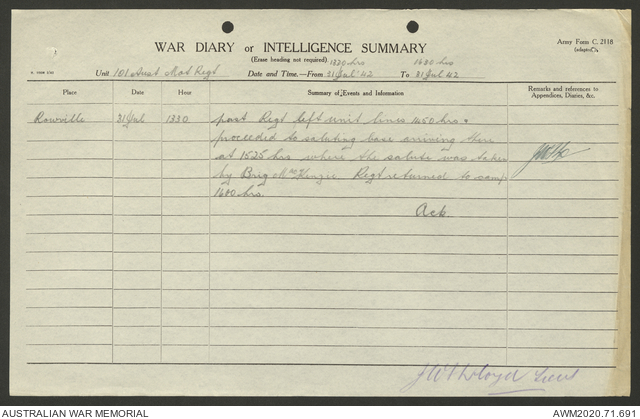 Army Form C. 2118
(adapted).
WAR DIARY or INTELLIGENCE SUMMARY
(Erase heading not required) 1330 hrs 1630 hrs
Unit 101 Aust Mot Regt Date and Time.—From 31 Jul '42 To 31 Jul 42
Place Date Hour Summary of Events and Information Remarks and references to Appendices, Diaries, &c.
Rowville 31 Jul 1330 past Regt left unit lines 1450 hrs &
proceeded to saluting base arriving there
at 1525 hrs where the salute was taken
by Brig McKenzie. Regt returned to camp
hrs.
Lieut
AUSTRALIAN WAR MEMORIAL AWM2020.71.691